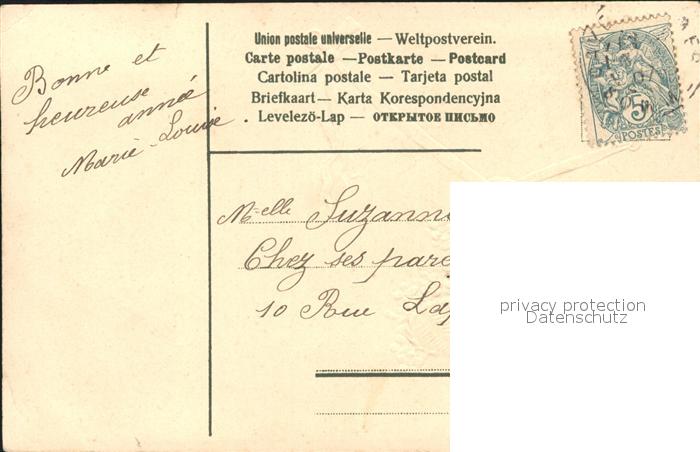 Bonne et
heureuse
année
Marie-Louise
Union postale universelle — Weltpostverein.
Carte postale — Postkarte — Postcard
Cartolina postale — Tarjeta postal
Briefkaart — Karta Korespondencyjna
Levelező-Lap — ОТКРЫТОЕ ПИСЬМО
5
POSTES
Melle Suzanne
Chez ses
10 Rue
privacy protection
Datenschutz